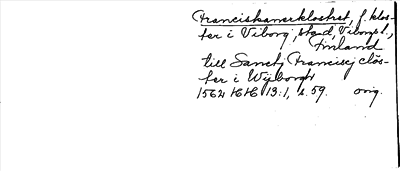 Franciskanerklostret, f. klos-
ter i Viborg, stad, Viborgs l.,
Finland
till Sanctj Francisej clös-
ter i Wijborgh
1562 KHH 13:1, s. 59. orig.